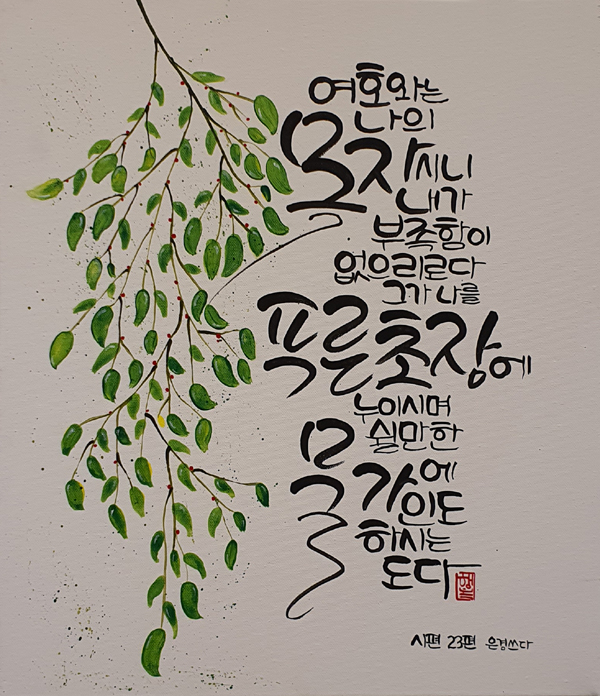 여호와는
나의
목자시니
내가
부족함이
없으리로다
그가 나를
푸른초장에
누이시며
쉴만한
물가에
인도
하시는
도다
시편 23편 은경쓰다